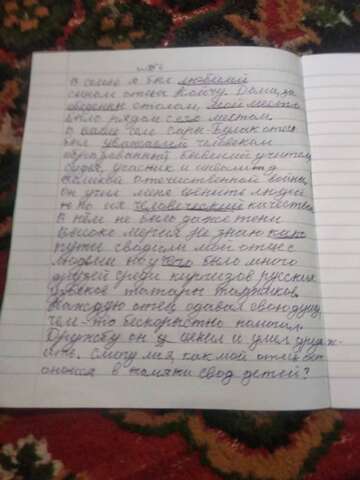 В семье я был любимый
сыном отца Койчу. Дома, за
обеденым столом, мой место
было рядом с его местом.
В селе Сары-Булак отец
был уважаемей человеком
образованный бывший учитель,
участник и инвалид
великой отечественной войны,
он учил меня ценить людей
по их человеческий качества
В нём не было даже тени
высоко мерия Не знаю каки
пути сводили мой отец с
людьми но у чего было много
друзей среди киргизов русских
татары таджиков.
Каждую отец отдавал свою душу,
чем-то бескорыстно помогал.
Дружбу он ценил и умел друж-
ить. как мой отец
в памяти свод детей?